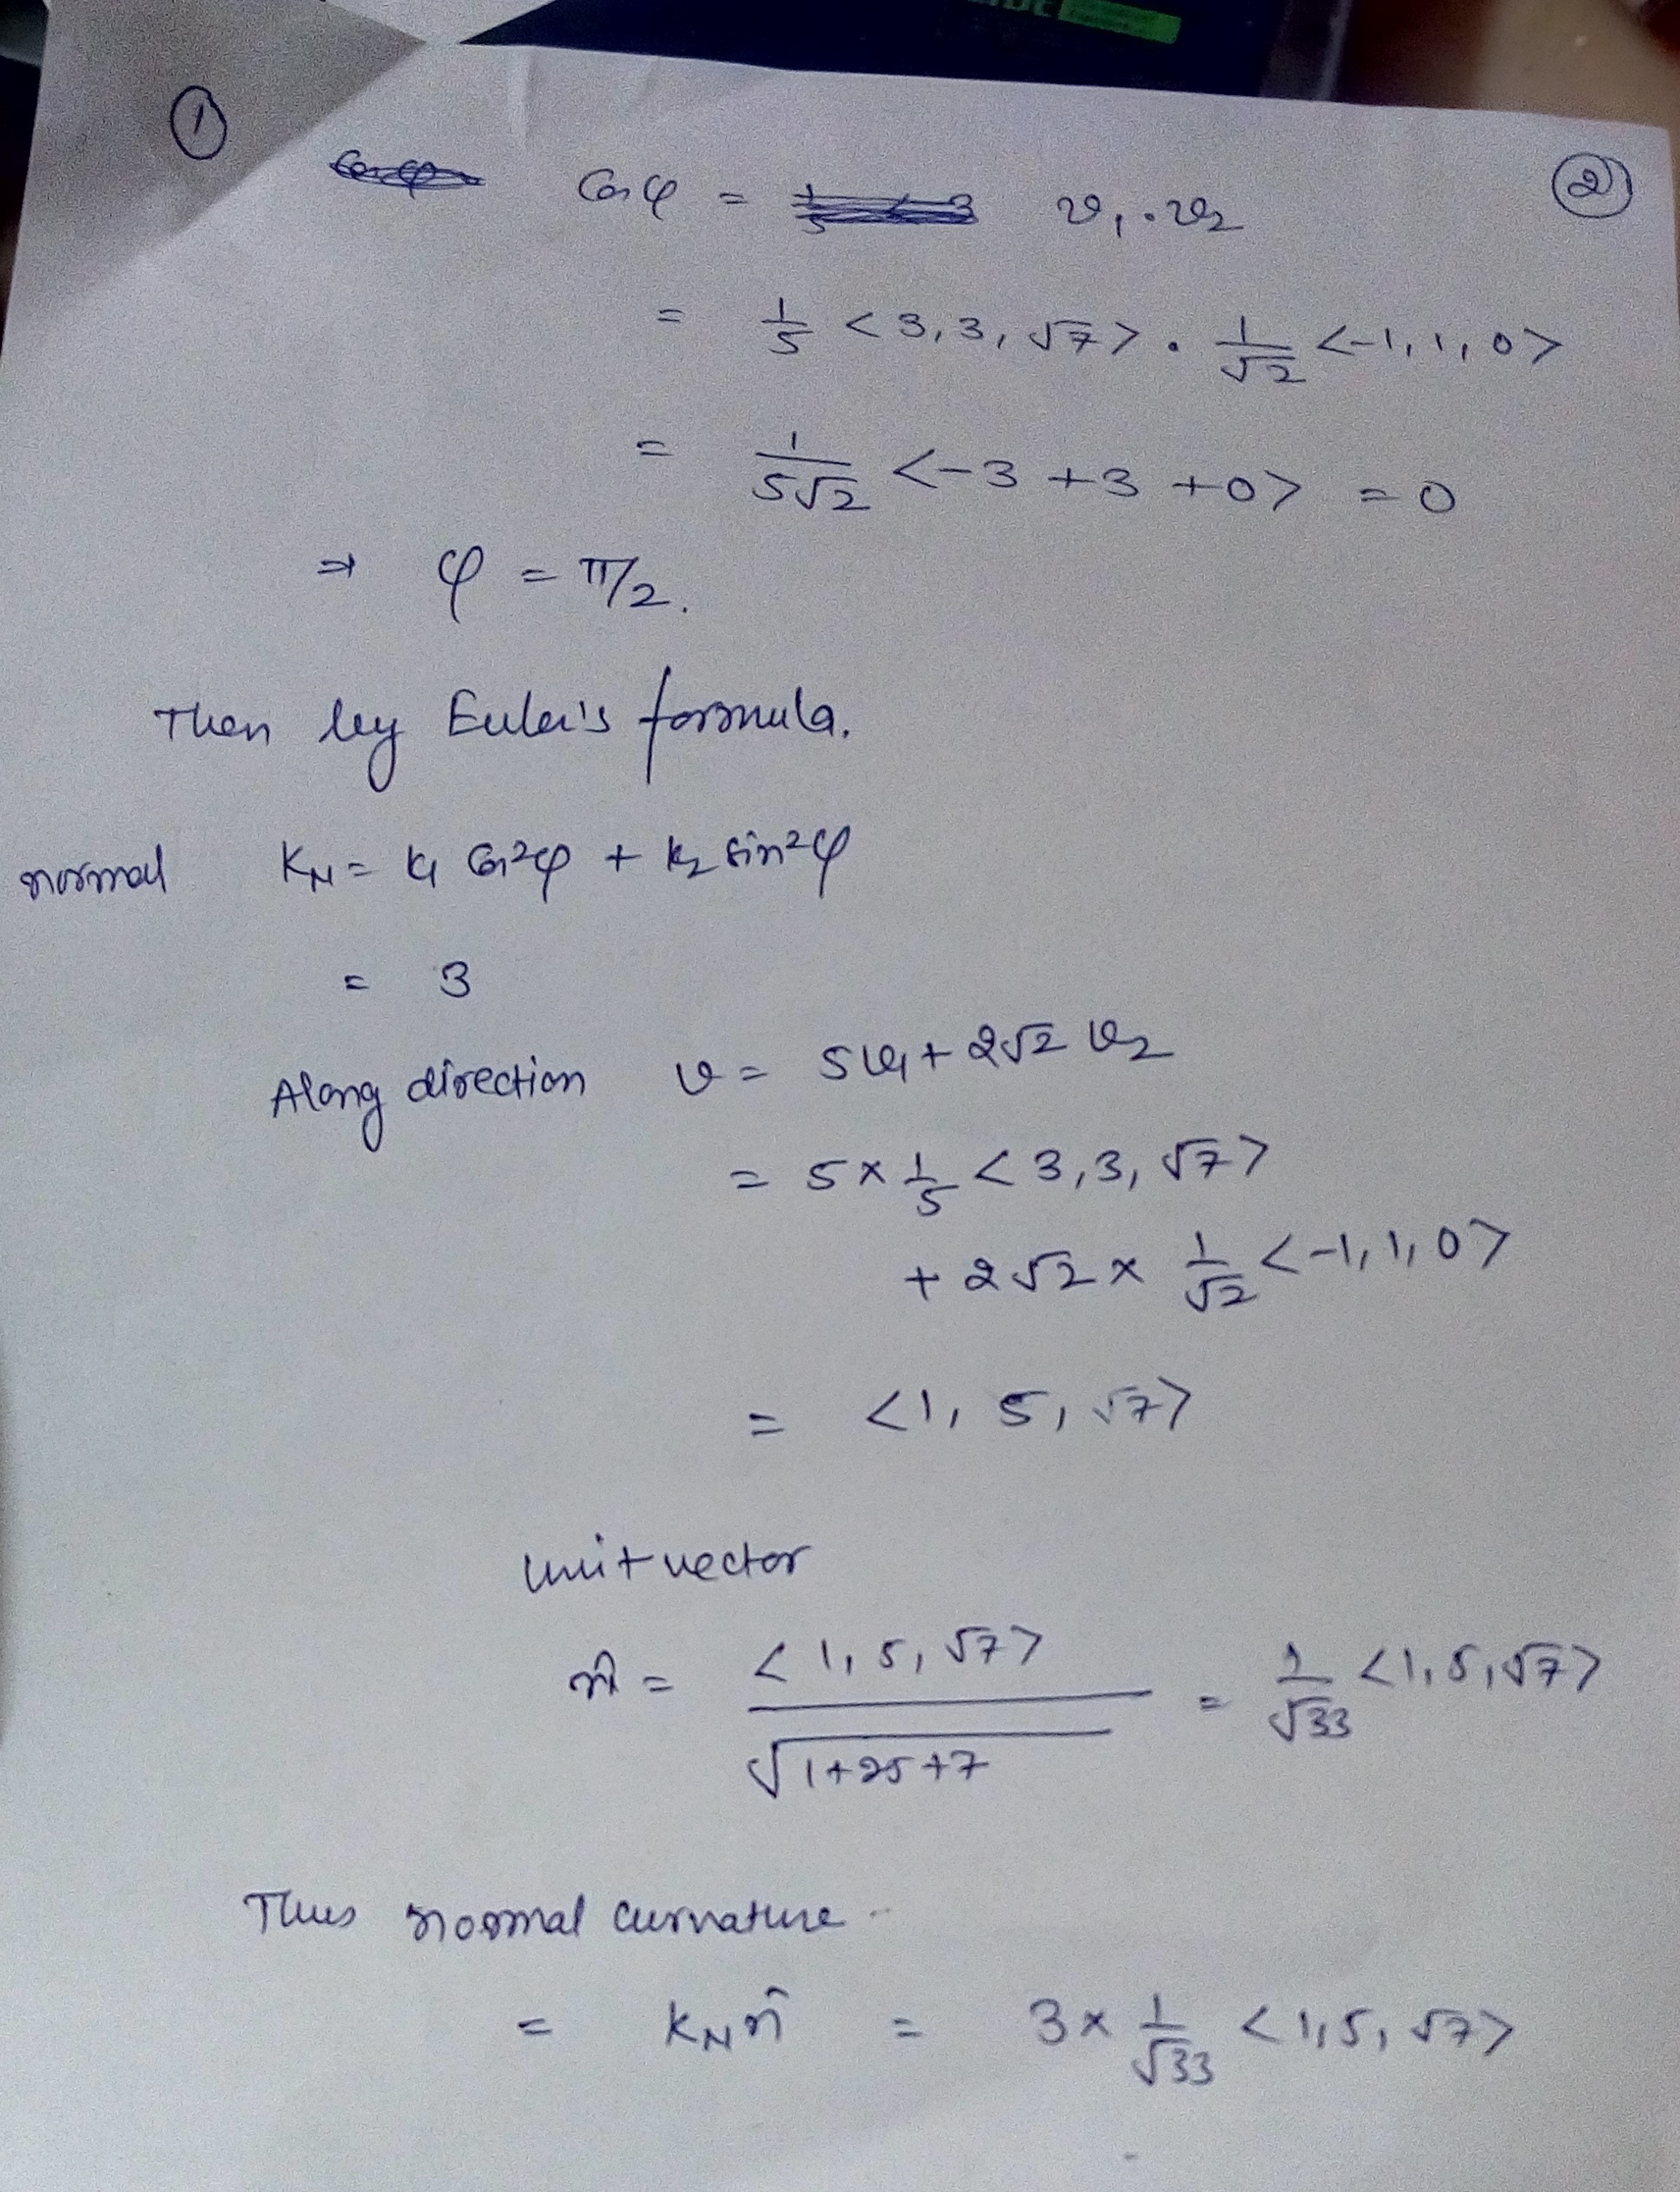 ①
②
Cos φ = v₁ · v₂
= 1/5 <3, 3, √7> · 1/√2 <-1, 1, 0>
= 1/5√2 <-3 + 3 + 0> = 0
⇒ φ = π/2.
Then by Euler's formula.
normal K_N = K₁ Cos²φ + K₂ sin²φ
= 3
Along direction v = 5v₁ + 2√2 v₂
= 5 × 1/5 <3, 3, √7>
+ 2√2 × 1/√2 <-1, 1, 0>
= <1, 5, √7>
Unit vector
n̂ = <1, 5, √7> / √1+25+7 = 1/√33 <1, 5, √7>
Thus normal curvature
= K_N n̂ = 3 × 1/√33 <1, 5, √7>